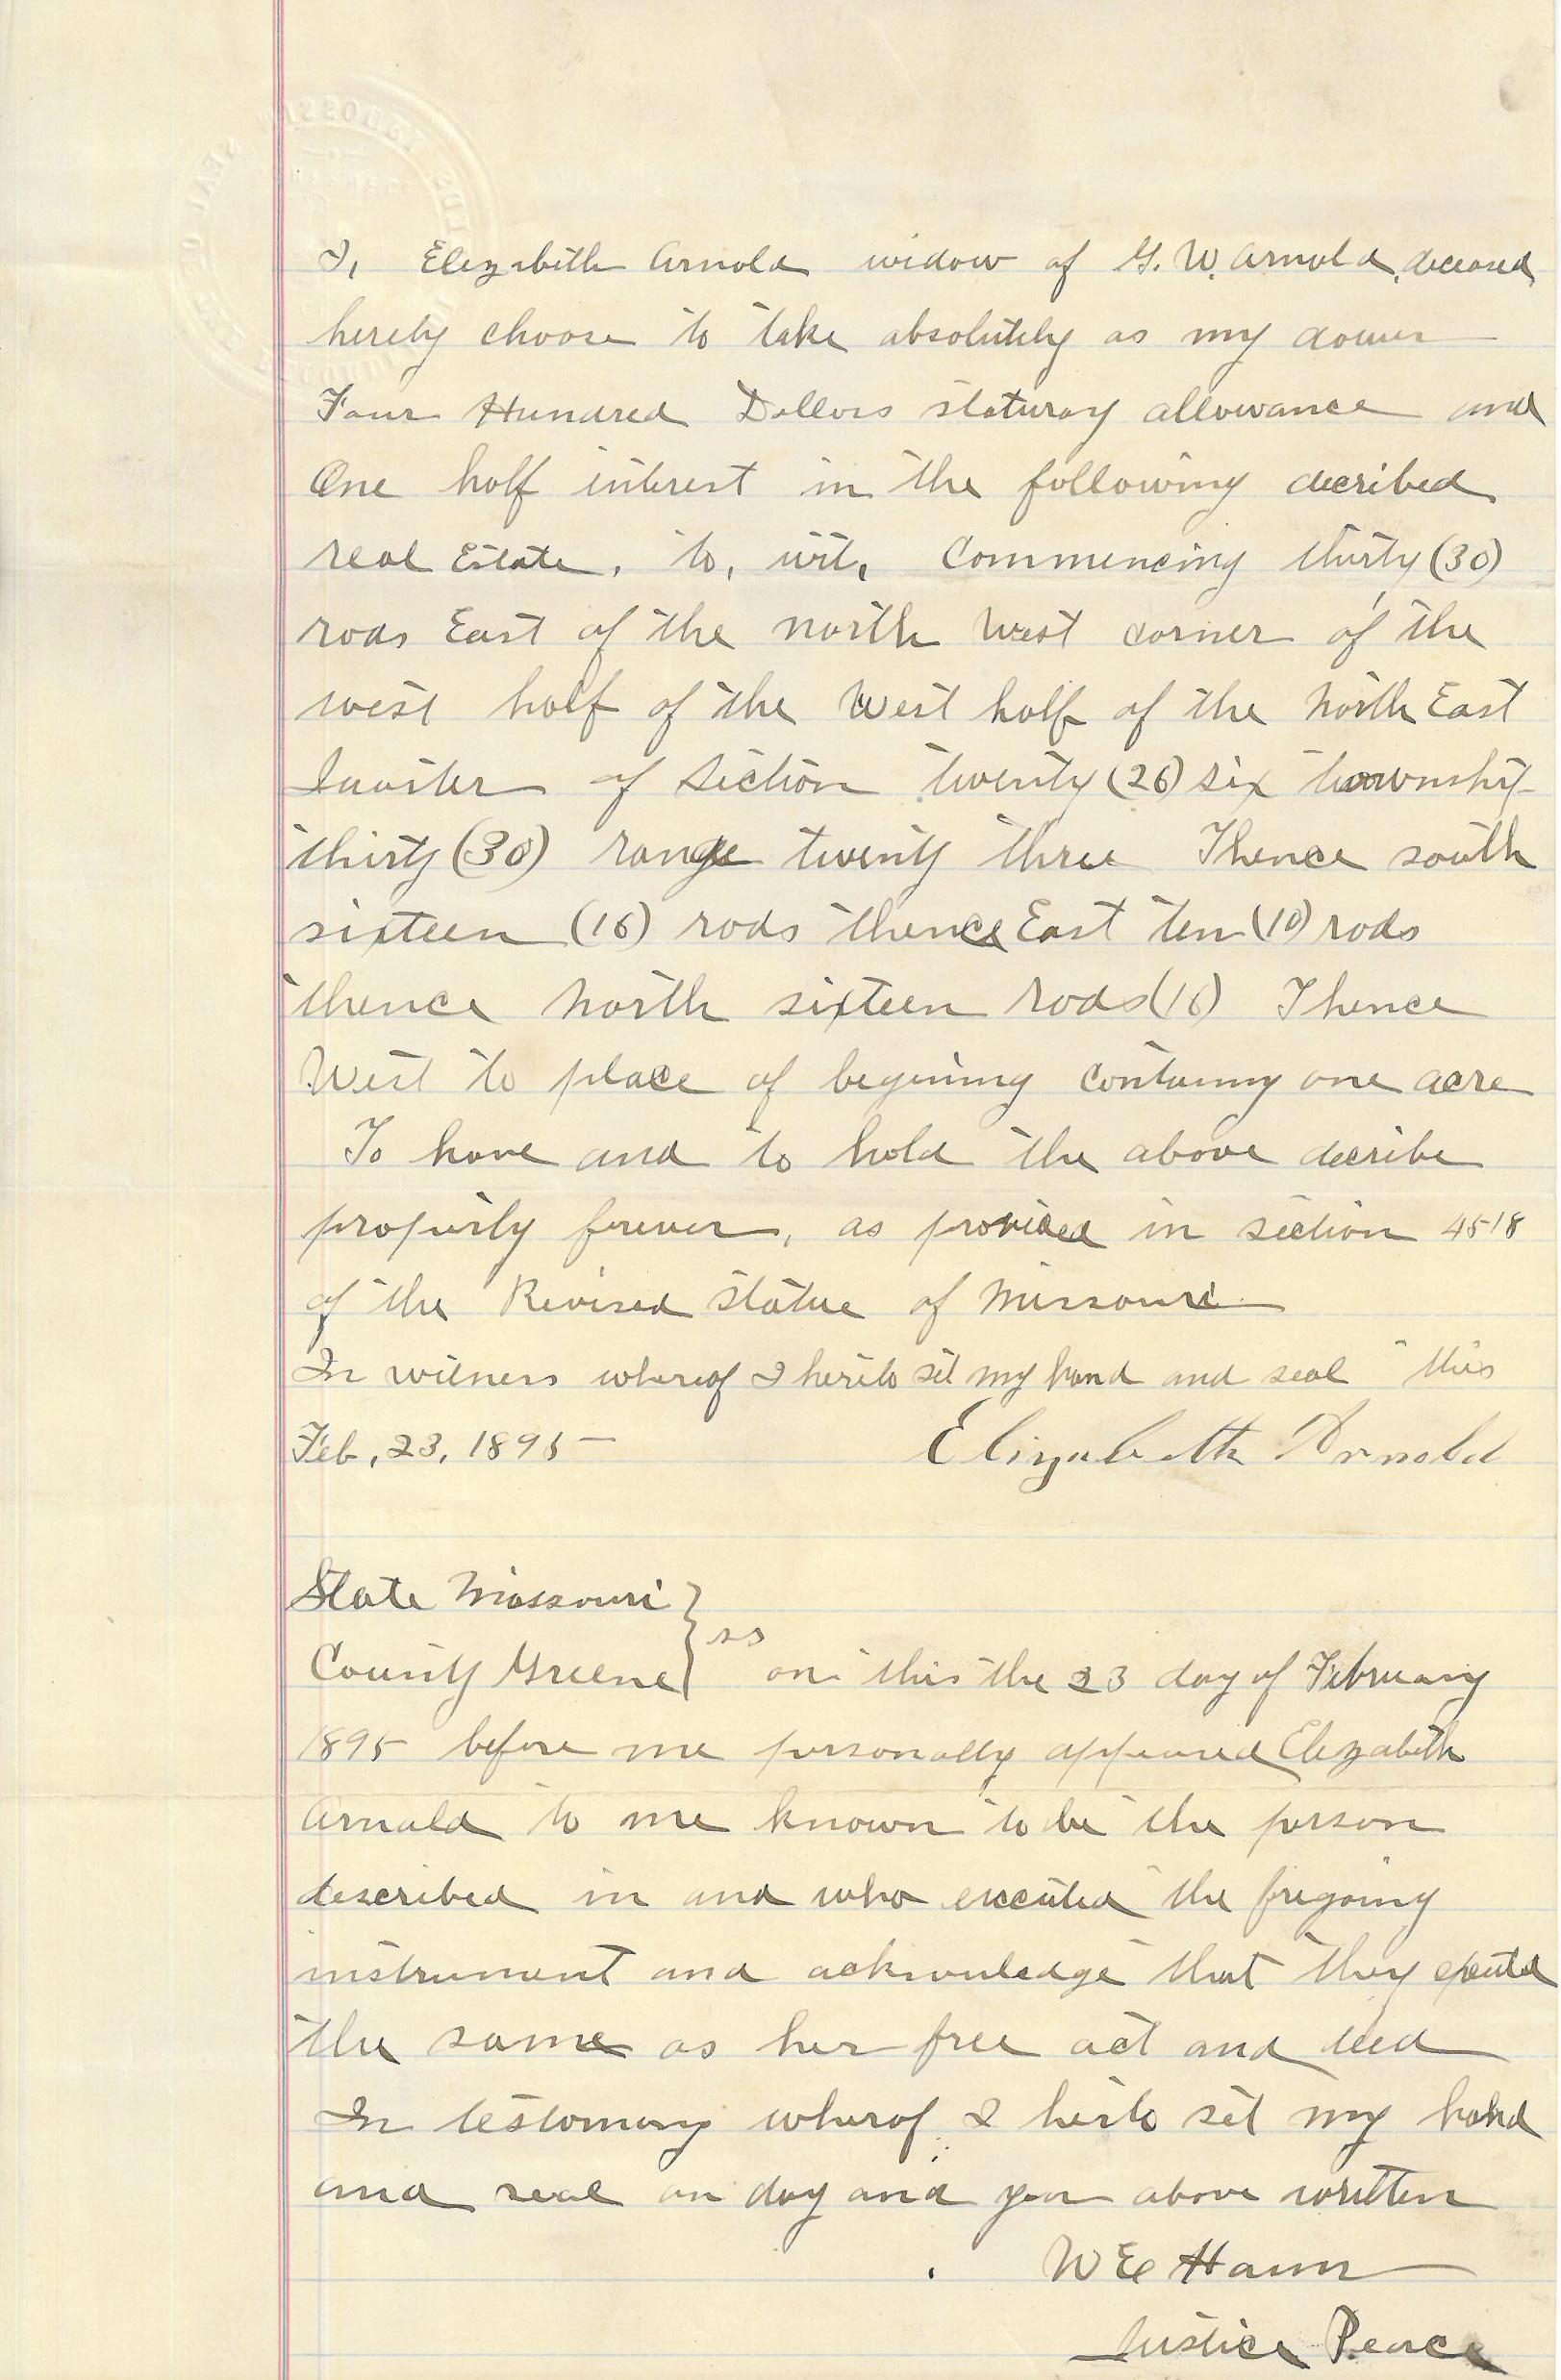 I, Elizabeth Arnold widow of G. W. Arnold, deceased
hereby choose to take absolutely as my dower
Four Hundred Dollors staturay allowance and
One half interest in the following decribed
real Estate, to, wit, Commencing thirty (30)
rods East of the north west corner of the
west half of the West half of the North East
Quarter of Section twenty (26) six township
thirty (30) range twenty three Thence south
sixteen (16) rods thence East ten (10) rods
thence North sixteen rods (16) Thence
West to place of begining containing one acre
To have and to hold the above decribe
property forever, as provided in section 4518
of the Revised Statue of Missouri
In witness whereof I hereto set my hand and seal this
Feb, 23, 1895 Elizabeth Arnold
State Missouri
County Greene } ss on this the 23 day of February
1895 before me personally appeared Elizabeth
Arnold to me known to be the person
described in and who executed the foregoing
instrument and acknowledge that they executed
the same as her free act and deed
In testomony wherof I hereto set my hand
and seal on day and year above written
W E Hann
Justice Peace